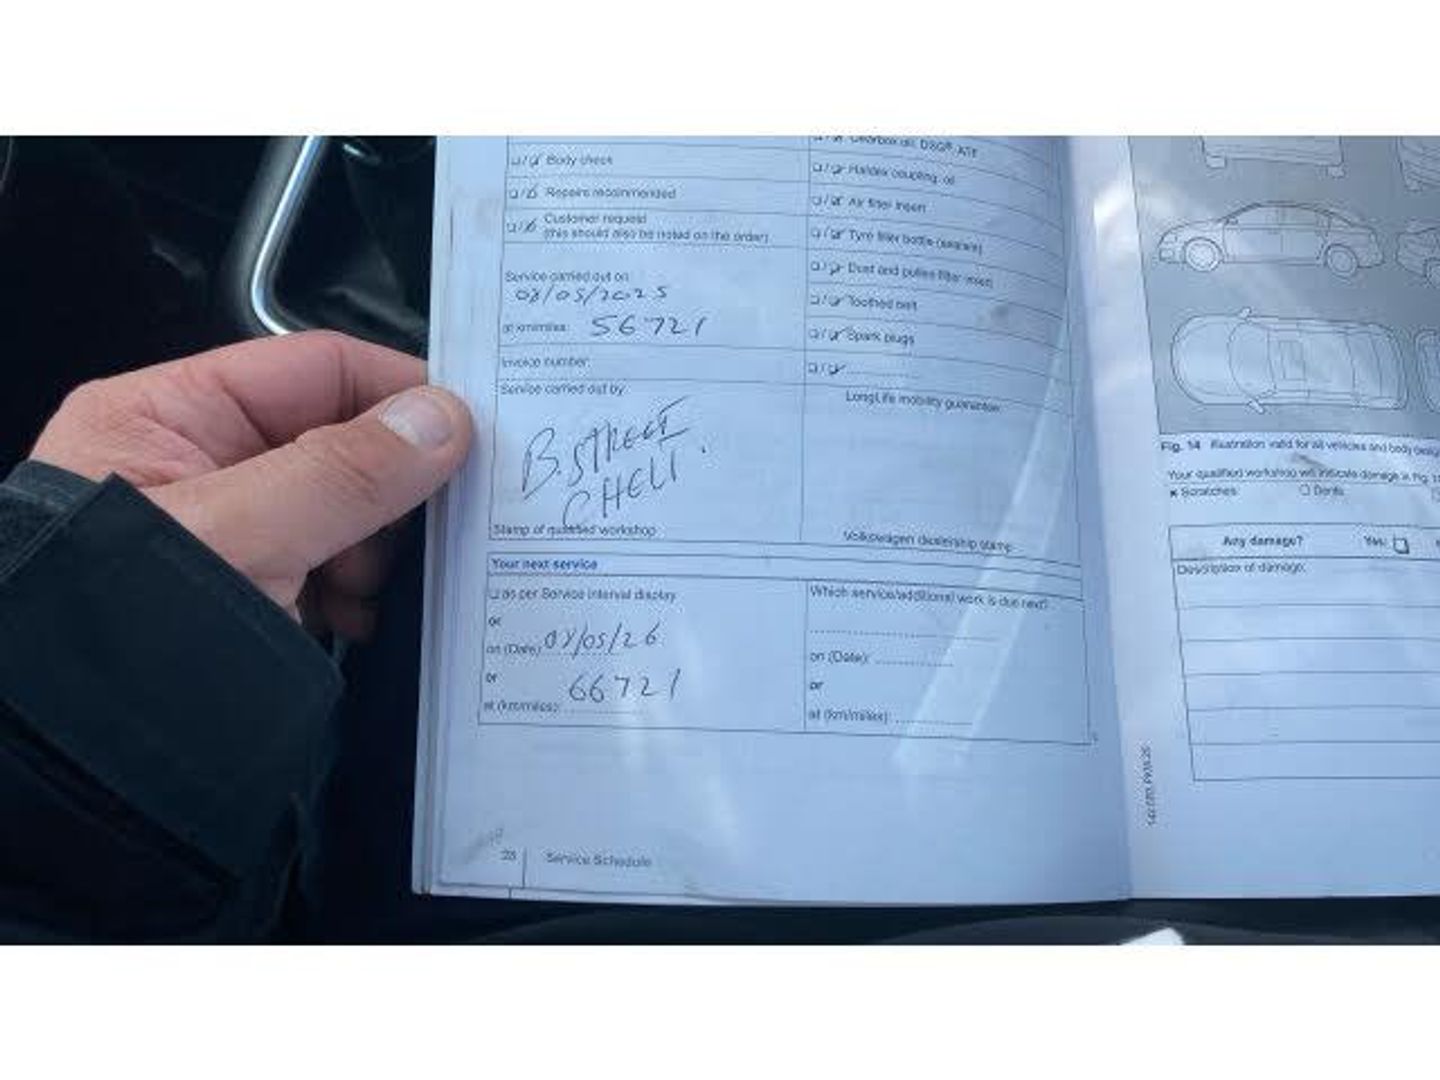 Gearbox oil, DSG®, ATF
Body check
Haldex coupling, oil
Repairs recommended
Air filter insert
Customer request
(this should also be noted on the order)
Tyre filler bottle (sealant)
Dust and pollen filter insert
Service carried out on:
08/05/2025
Toothed belt
at km/miles: 56721
Spark plugs
Invoice number:
Service carried out by:
LongLife mobility guarantee:
B. STREET
CHELT.
Stamp of qualified workshop
Volkswagen dealership stamp
Your next service
as per Service interval display
or
on (Date): 08/05/26
or
66721
at (km/miles):
Which service/additional work is due next?
on (Date):
or
at (km/miles):
28 Service Schedule
Fig. 14 Illustration valid for all vehicles and body
Your qualified workshop will indicate damage in Fig.
Scratches: Dents:
Any damage? Yes:
Description of damage: